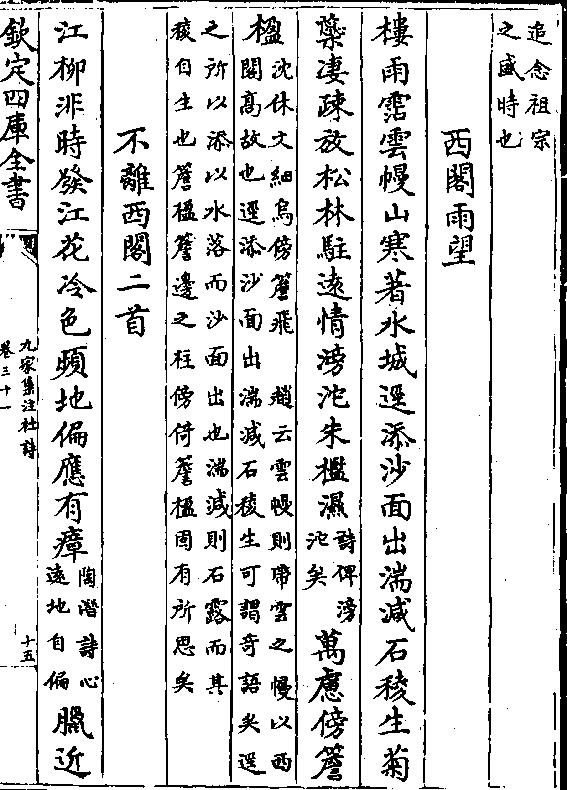 追念祖宗
之盛時也
西閣雨望
樓雨霑雲幔山寒著水城逕添沙面出湍減石稜生菊
蘂凄疎放松林駐遠情滂沱朱檻濕詩俾滂沱矣萬慮傍簷
楹沈休文細鳥傍簷飛　趙云雲幔則帶雲之幔以西
閣高故也逕添沙面出湍減石稜生可謂奇語矣逕
之所以添以水落而沙面出也湍減則石露而其
稜自生也簷楹簷邊之柱傍倚簷楹固有所思矣
不離西閣二首
江柳非時發江花冷色頻地偏應有瘴陶潛詩心遠地自偏臘近
欽定四庫全書
九家集注杜詩
卷三十一
十五